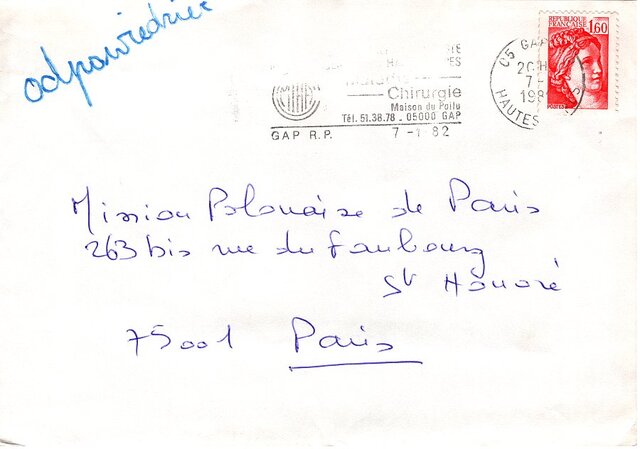 odpowiedzieć
REPUBLIQUE
FRANÇAISE 1,60
POSTES
05 GAP
20H
7-
198
HAUTES
Chirurgie
Maison du Poilu
Tél. 51.38.78 - 05000 GAP
GAP R.P. 7 -1 82
Mission Polonaise de Paris
263 bis rue du Faubourg
St Honoré
75001 Paris